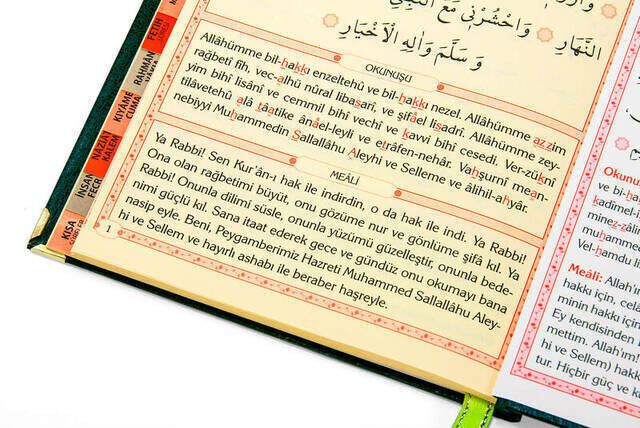 النَّهَارِ وَاحْشُرْنِي مَعَ النَّبِيِّ
وَسَلَّمَ وَاٰلِهِ الْاَخْيَارِ
OKUNUŞU
Allâhümme bil-hakkı enzeltehû ve bil-hakkı nezel. Allâhümme azzim
rağbetî fîh, vec-alhû nûral libasarî, ve şifâel lisadrî. Allâhümme zey-
yim bihî lisânî ve cemmil bihî vechî ve kavvi bihî cesedî. Ver-züknî
tilâvetehû alâ tâatike ânâel-leyli ve etrâfen-nehâr. Vahşurnî mean-
nebiyyi Muhammedin Sallallâhu Aleyhi ve Selleme ve âlihil-ahyâr.
MEÂLİ
Ya Rabbi! Sen Kur'ân-ı hak ile indirdin, o da hak ile indi. Ya Rabbi!
Ona olan rağbetimi büyüt, onu gözüme nur ve gönlüme şifâ kıl. Ya
Rabbi! Onunla dilimi süsle, onunla yüzümü güzelleştir, onunla bede-
nimi güçlü kıl. Sana itaat ederek gece ve gündüz onu okumayı bana
nasip eyle. Beni, Peygamberimiz Hazreti Muhammed Sallallâhu Aley-
hi ve Sellem ve hayırlı ashabı ile beraber haşreyle.
1
FETİH
RAHMAN
KIYAME
CUMA
NAZİAT
KALEM
İNSAN
FECR
KISA
Okunu
ve bi-ha
kadîmel
minez-zâ
muham
Vel-hamdu li
Meâli: Allah'ı
hakkı için, cela
minin hakkı içi
Ey kendisinden
mettim. Allah'ım!
hi ve Sellem) hakk
tur. Hiçbir güç ve k